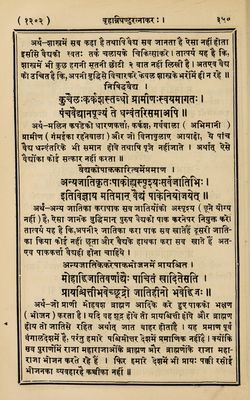 (१३०२) बृहन्निघण्टुरत्नाकरः। ३५०
अर्थ-शास्त्रमें सब कहा है तथापि वैद्य सब जानता है ऐसा नहीं होता
इसीसे वैद्यको स्वतः तर्क चलायके चिकित्साकरे। तात्पर्य यह है कि,
शास्त्रमें भी कुछ हगनी सूतनी छींटी २ बातें नहीं कही है। अतएव वैद्य
को उचित है कि, अपनी बुद्धिसे विचारकरे केवल शास्त्रकेही भरोसे ही न रहे॥
निषिद्धवैद्य।
कुचैलःकर्कशस्तब्धो ग्रामीणःस्वयमागतः।
पंचवैद्यानपूज्यंते धन्वंतरिसमाअपि॥
अर्थ-मलिन कपडेको धारणकर्त्ता, कर्कश; गर्ववाला (अभिमानी)
ग्रामीण (गमईका रहनेवाला) और जो विनाबुलाए आयाहो, ये पांच
वैद्य धन्वंतरिके भी समान होवें तथापि पूजे नहींजाते। अर्थात् ऐसे
वैद्योंका कोई सत्कार नहीं करता॥
वैद्यकोपाककारित्वमेंप्रमाण
अन्यजातिकृतःपाकोह्यस्पृश्यःसर्वजातिभिः।
इतिविज्ञाय मतिमान् वैद्यं पाकेनियोजयेत्॥
अर्थ-अन्य जातिका करापाक सब जातियोंको अस्पृश्य (छूने योग्य
नहीं) है; ऐसा जानके बुद्धिमान् पुरुष वैद्यको पाक करनेपर नियुक्त करे।
तात्पर्य यह है कि,अपनीर जातिका करा पाक सब खातेहैं इसरी जाति-
का किया कोई नहीं छता और वैद्यके हाथका करा सब खाते हैं अत-
एव पाककर्त्ता वैद्यही होना चाहिये॥
अन्यजातिकेकरेपाकभोजनमें प्रायश्चित्त।
मोहाद्द्विजातिवर्णाद्यैः पाचितं खादितेसति।
प्रायश्चित्तीभवेच्छूद्रो जातिहीनो भवेद्द्विजः॥
अर्थ-जो प्राणी मोहवश ब्राह्मण आदिके करे हुए पाकको भक्षण
(भोजन) करता है। यदि वह शूद्र होवे तो प्रायश्चित्ती होवे और ब्राह्मण
होय तो जातिसे रहित अर्थात् जात बाहर होताहै। यह प्रमाण पूर्व
बंगालदेशमें है; परंतु हमारे पश्चिमोत्तर देशमें प्रमाणिक नहीं। क्योंकि
सब पुराणोंमें राजा महाराजाओंके ब्राह्मण और ब्राह्मणोंके राजा महा-
राजा भोजन करते रहे हैं। फिर हमारे देशमें भी प्रायः पक्की रसोई
भोजनका व्यवहारहै कच्चीका नहीं॥